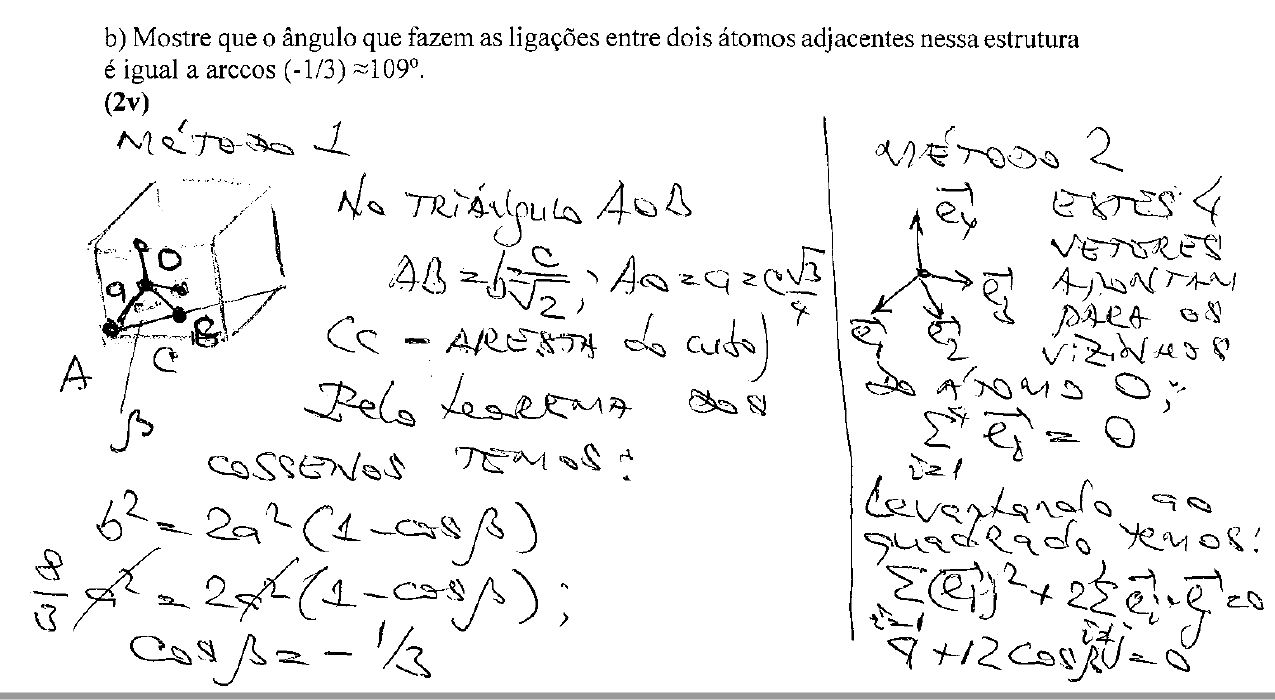 b) Mostre que o ângulo que fazem as ligações entre dois átomos adjacentes nessa estrutura
é igual a arccos (-1/3) ≈109º.
(2v)
MÉTODO 1
NO TRIÂNGULO AOB
AB = b = c/√2; AO = a = c√3/4
(c - ARESTA do cubo)
Pelo teorema dos
COSSENOS TEMOS:
b² = 2a² (1 - cos β)
8/3 a² = 2a² (1 - cos β);
cos β = - 1/3
O
a
B
A
C
β
MÉTODO 2
e₄
ESTES 4
VETORES
e₃
APONTAM
PARA OS
e₁
e₂
VIZINHOS
do ÁTOMO O;
∑⁴ i=1 eᵢ = 0
Levantando ao
quadrado temos:
∑ i=1 (eᵢ)² + 2∑ i≠j eᵢ·eⱼ = 0
4 + 12 cos β = 0